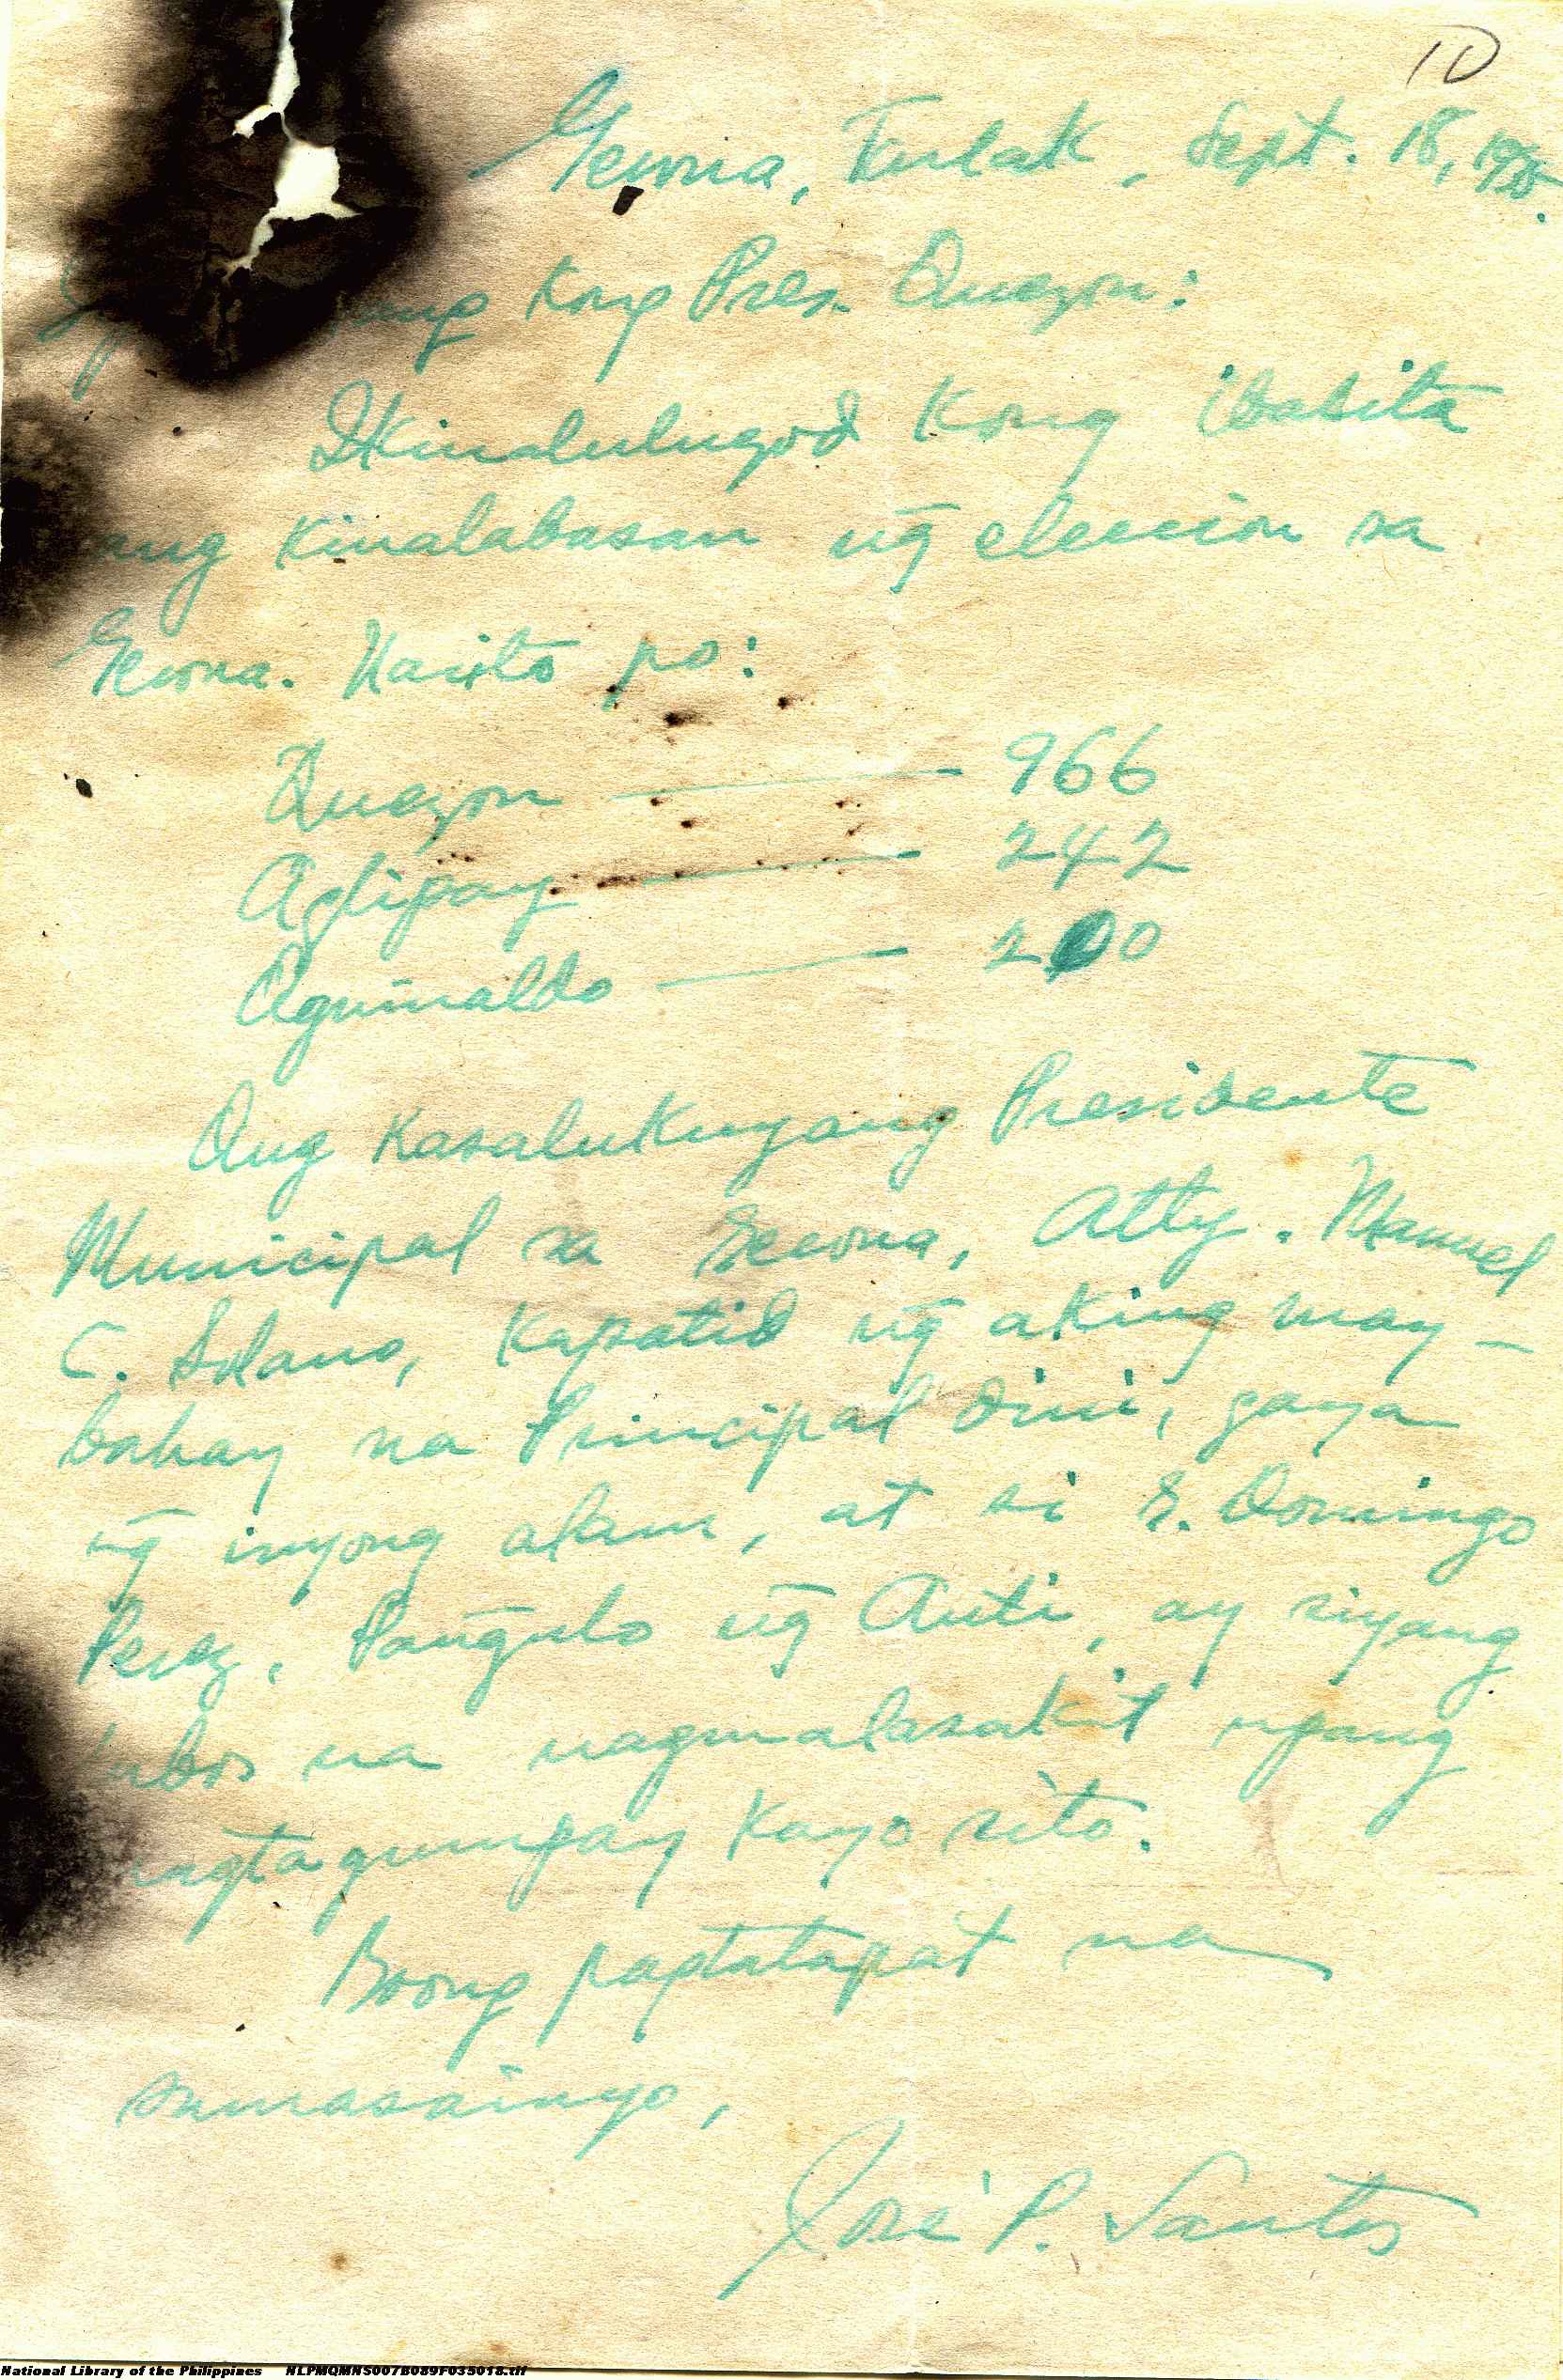 10
Gerona, Tarlak, Sept. 18, 1935.
Kong Pres. Quezon:
Ikinalulugod Kong ibalita
ang Kinalabasan ng̃ eleccion sa
Gerona. Narito po:
Quezon — 966
Aglipay — 242
Aguinaldo — 200
Ang Kasalukuyang Presidente
Municipal sa Gerona, Atty. Manuel
C. Solano, Kapatid ng̃ aking may-
bahay na Principal dini, gaya
ng̃ inyong alam, at si G. Domingo
Perez, Pang̃ulo ng̃ Anti, ay siyang
lubos na nagmalasakit upang
magtagumpay Kayo rito.
Boong pagtatapat na
sumasainyo,
José P. Santos
National Library of the Philippines NLPMQMNS007B089F035018.tif